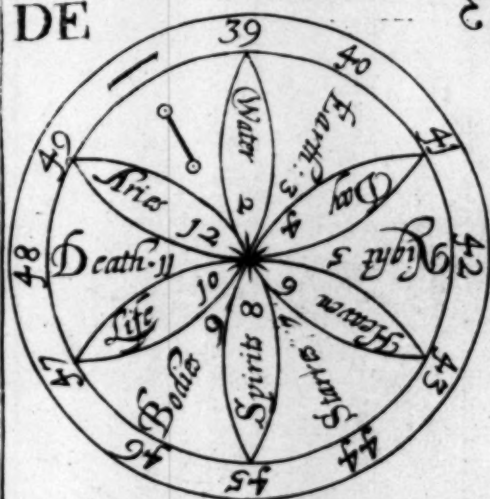 DE
39
40
41
42
43
44
45
46
47
48
49
Water 2
Earth: 3
Day 4
Night 5
Heaven 6
Starres: 7
Spirits 8
Bodies 9
Life 10
Death. 11
Aries 12